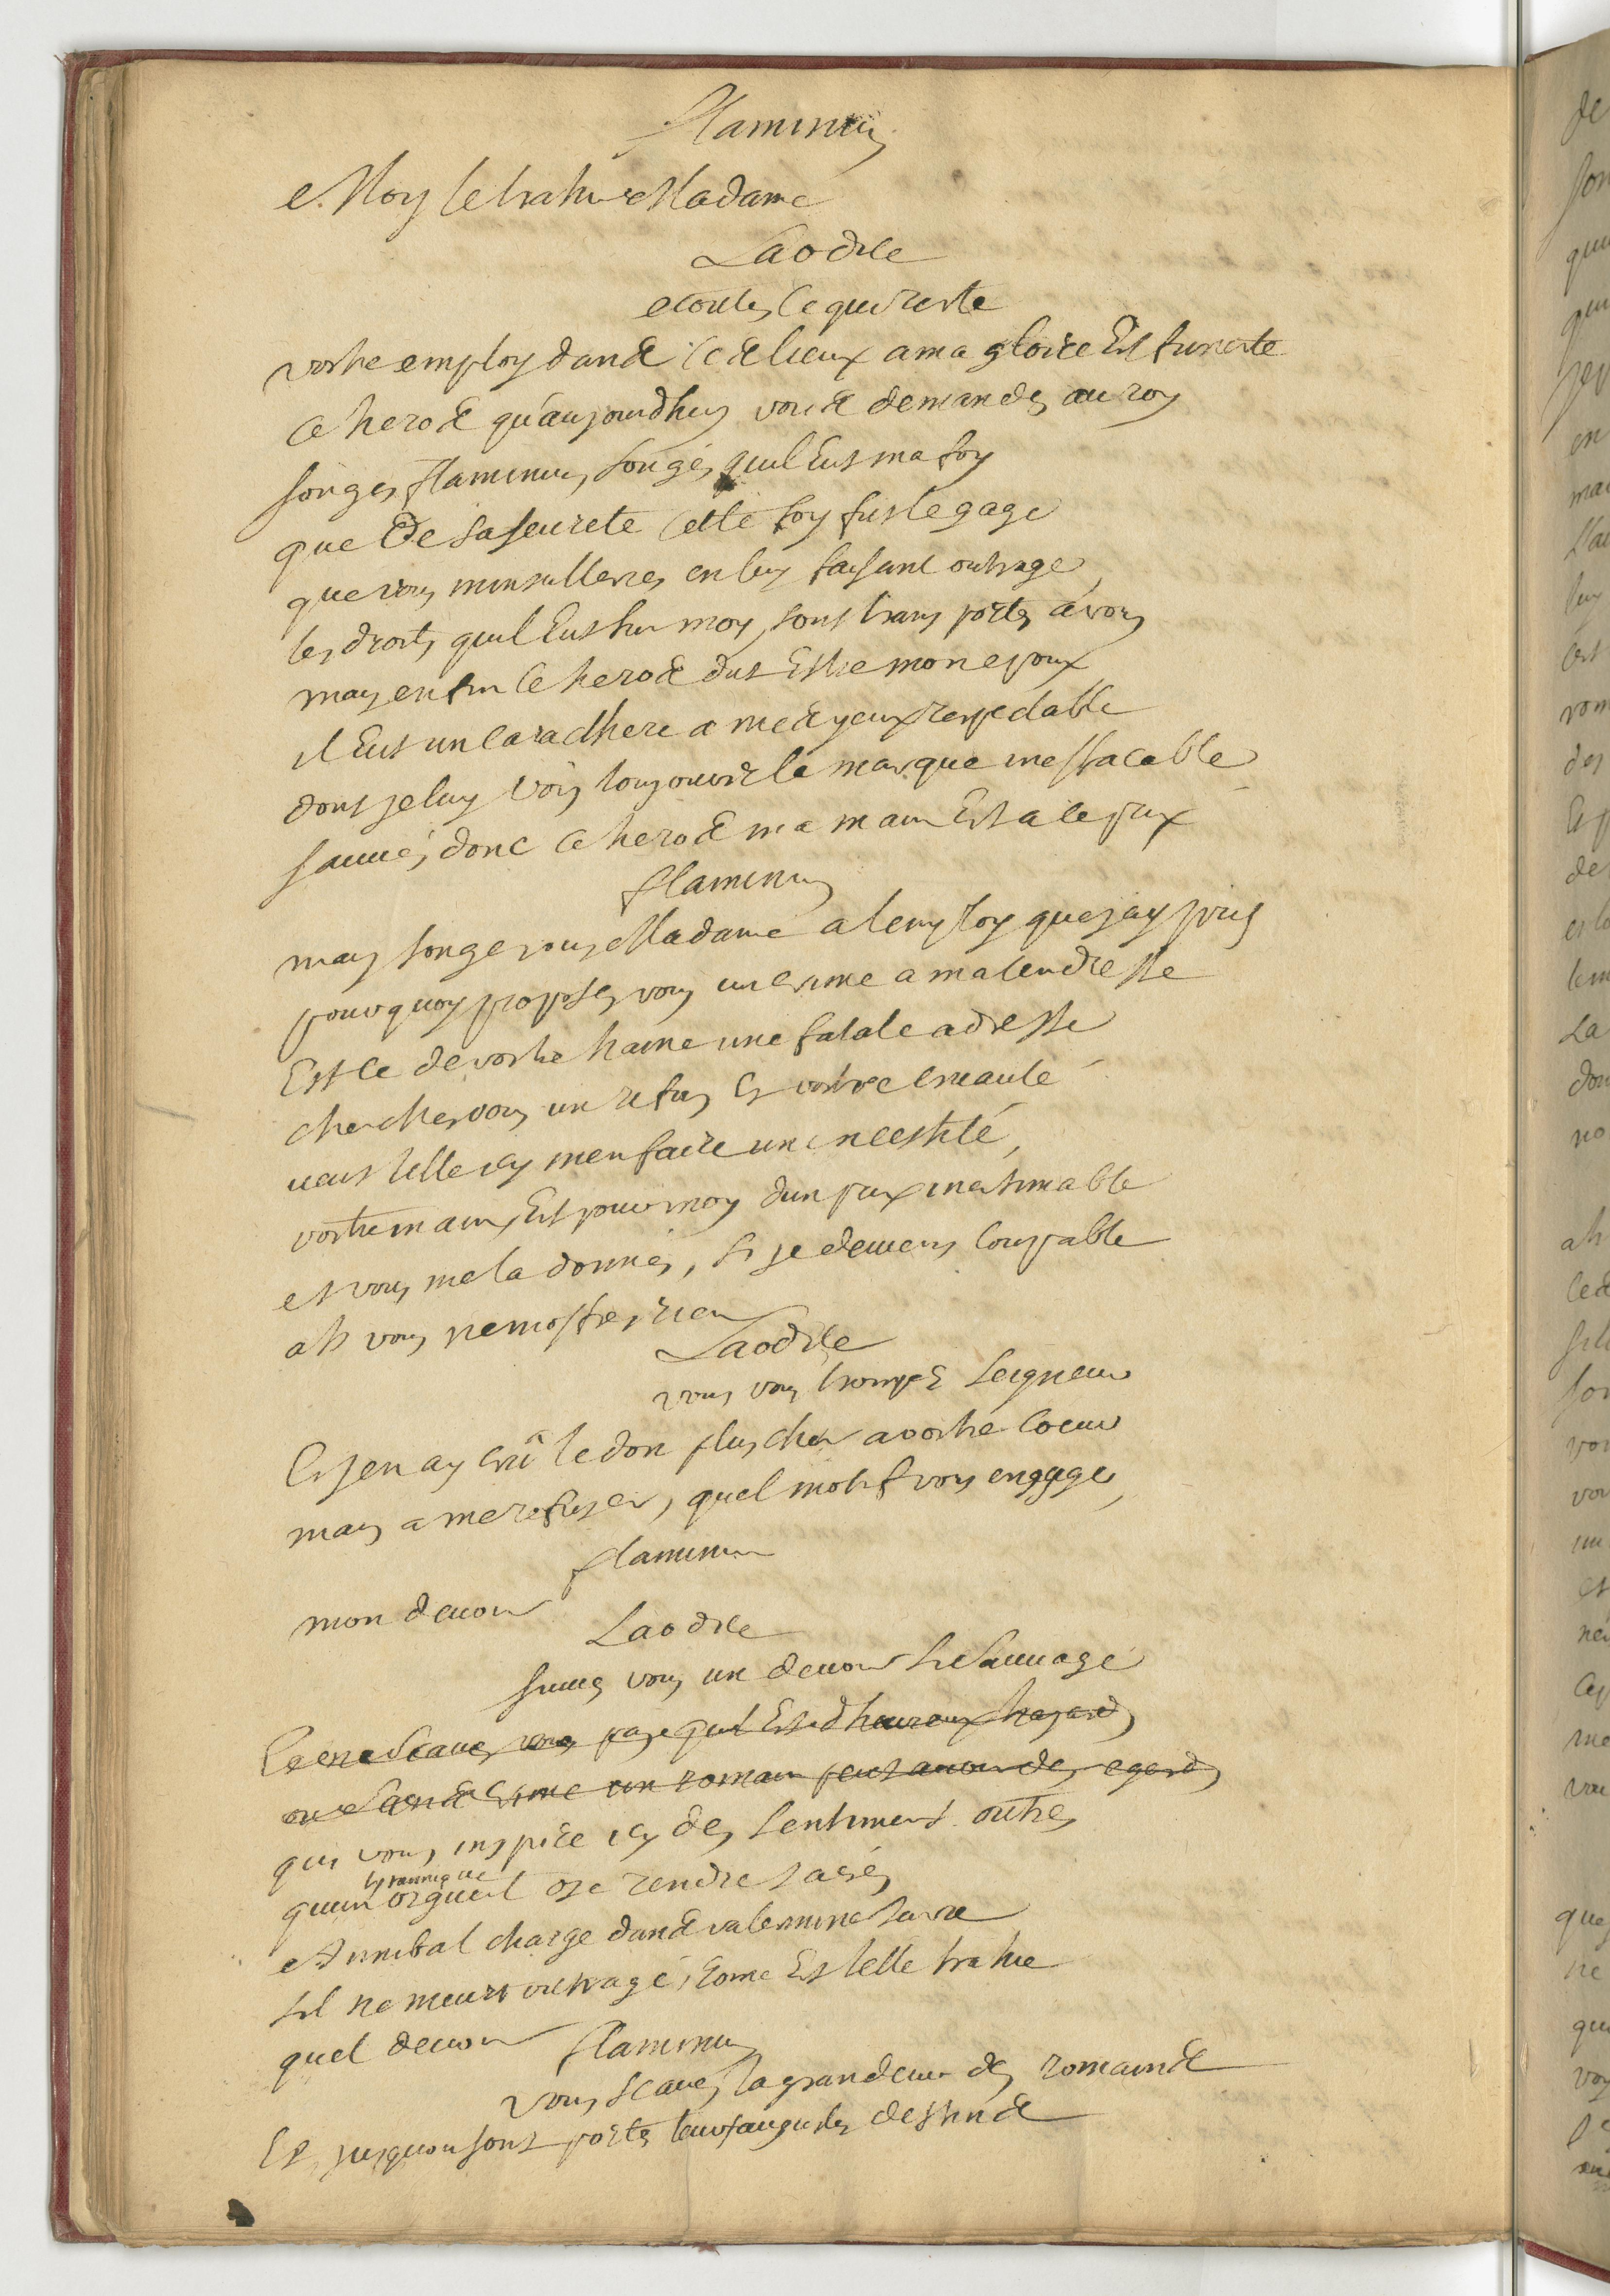 flaminius
Moy le trahir Madame
Laodice
ecoutes ce qui reste
vostre employ dans ces lieux a ma gloire Est funeste
ce heros qu'aujourdhuy vous demandes au roy
songes flaminius, songés quil Eut ma foy
que de sa seureté cette foy fust le gage
que vous minsulteries en luy faisant outrage
les droits quil Eut sur moy sont transportés a vous
mais enfin ce heros dut Estre mon epoux
il Eut un caracthere a mes yeux respectable
dont je luy vois toujours la marque ineffacable
sauués donc ce heros ma main Est a ce prix
flaminius
mais songes vous Madame a lemploy que jay pris
pourquoy proposes vous un crime a ma tendresse
Est ce de vostre haine une fatale adresse
cherches vous un refus Et vostre cruauté
veut telle icy men faire une necessité,
vostre main Est pour moy dun prix inestimable
et vous me la donnés, si je deuiens coupable
ah vous ne moffres rien
Laodice
vous vous trompés seigneur
Et jen ay crû le don plus cher a vostre coeur
mais a me refuser, quel motif vous engage,
flaminius
mon deuoir
Laodice
suiués vous un deuoir si sauuage
ne scaues vous pas quil Est dheureux hazards
ou sans crime un romain peut auoir des egards
qui vous inspire icy des sentimens outrés
tyrannique
quun orgueil ose rendre sacrés
Annibal chargé dans va terminer sa vie
sil ne meurt outragé, rome Est telle trahie
quel deuoir
flaminius
vous scaués la grandeur des romains
Et jusquou sont portés leurs augustes destins